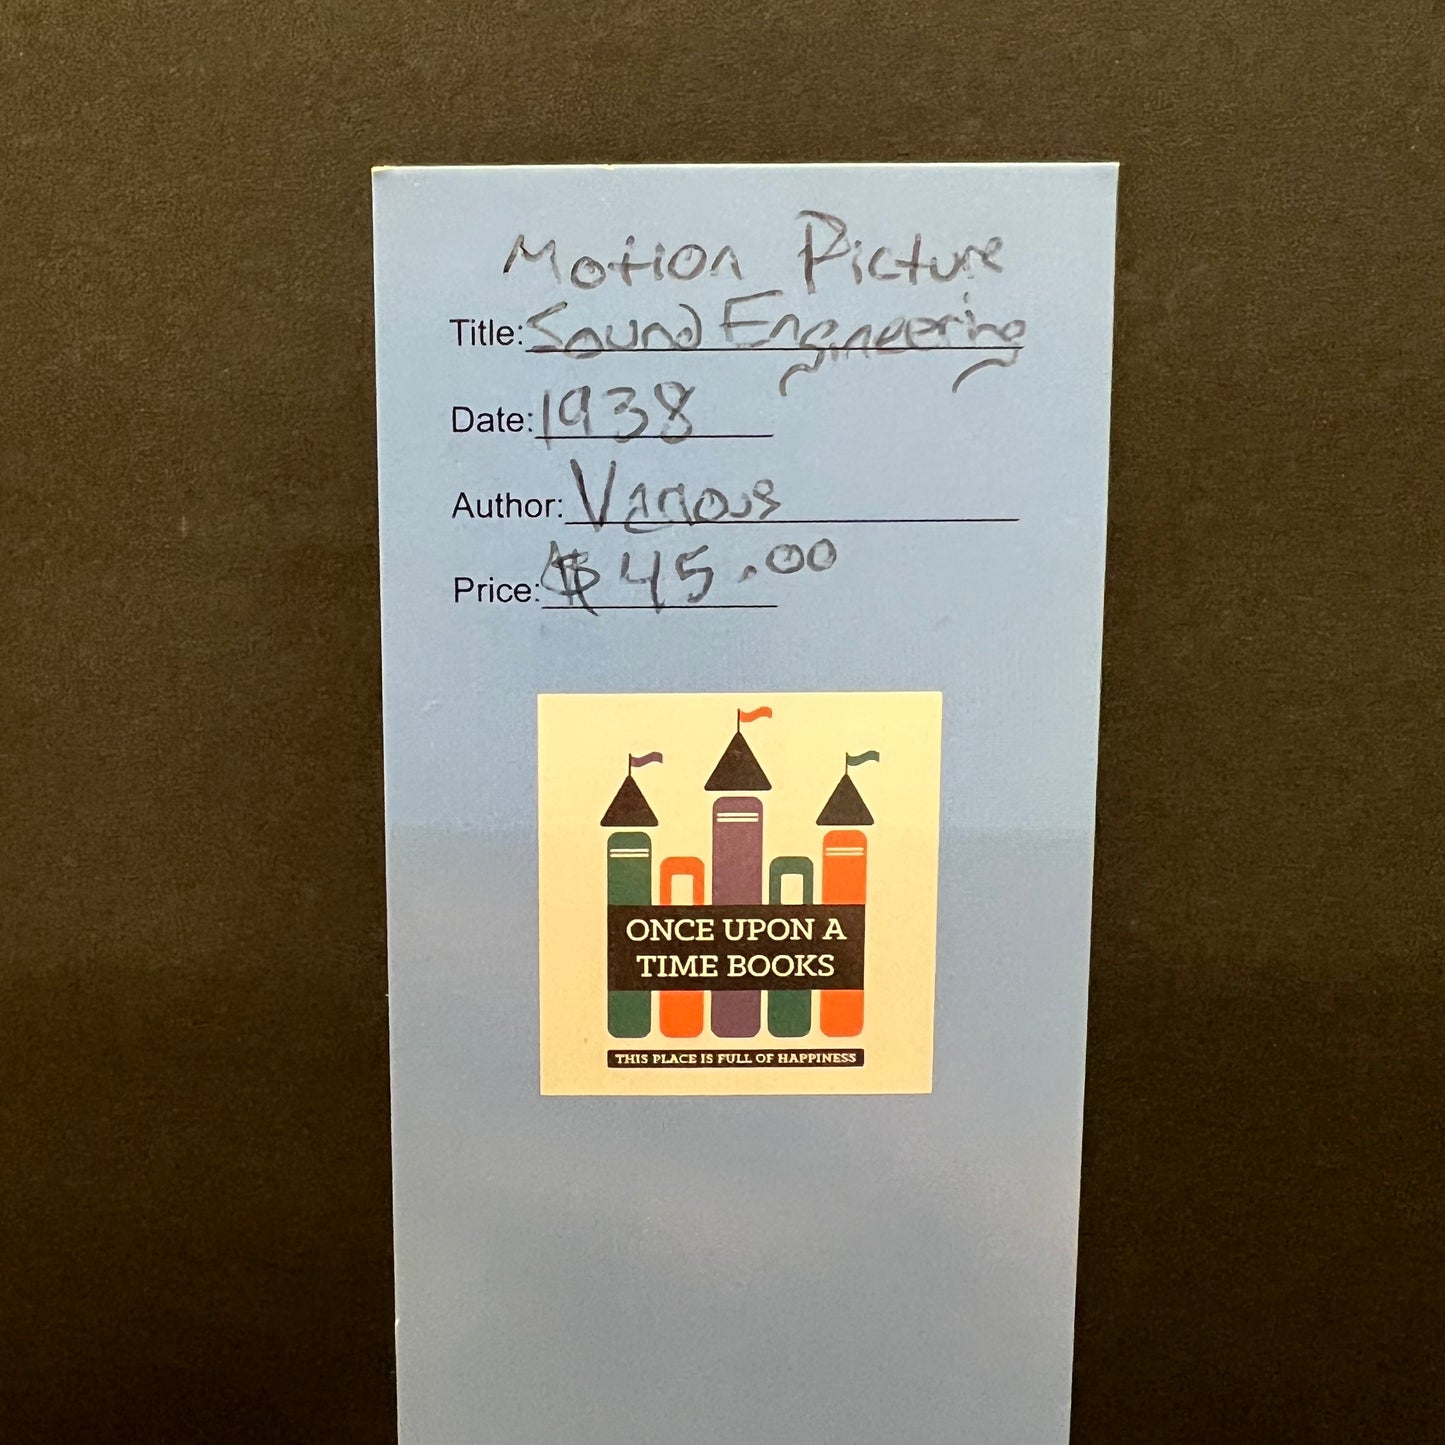 Motion Picture
Title: Sound Engineering
Date: 1938
Author: Various
Price: $45.00
ONCE UPON A
TIME BOOKS
THIS PLACE IS FULL OF HAPPINESS